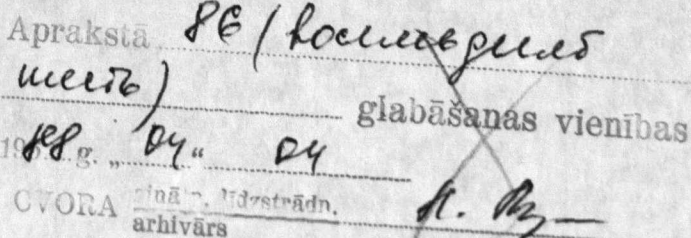 Aprakstā 86 (восемьдесят
шесть) glabāšanas vienības
1988 g. „04“ 04
CVORA zinātn. līdzstrādn.
arhivārs